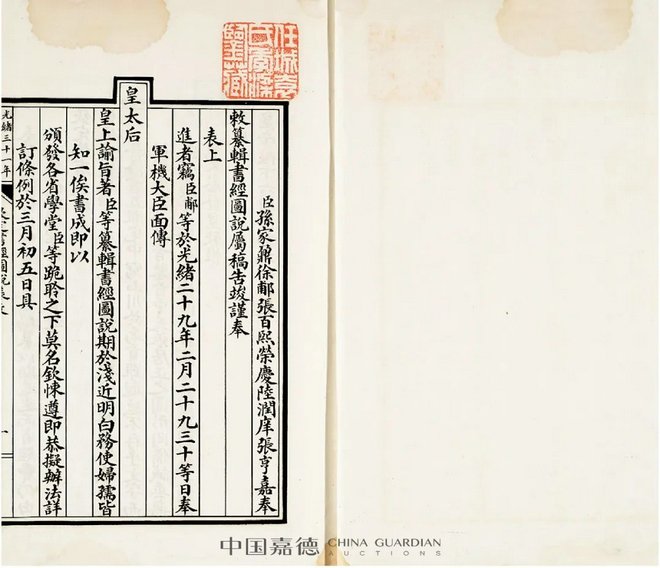 臣孫家鼐徐郙張百熙榮慶陸潤庠張亨嘉奉
敕纂輯書經圖說屬稿告竣謹奉
表上
進者竊臣郙等於光緒二十九年二月二十九三十等日奉
軍機大臣面傳
皇太后
皇上諭旨著臣等纂輯書經圖說期於淺近明白務使婦孺皆
知一俟書成即以
頒發各省學堂臣等跪聆之下莫名欽悚遵即恭擬辦法詳
訂條例於三月初五日具
光緒三十一年
書經圖說
一
中国嘉德
CHINA GUARDIAN
AUCTIONS